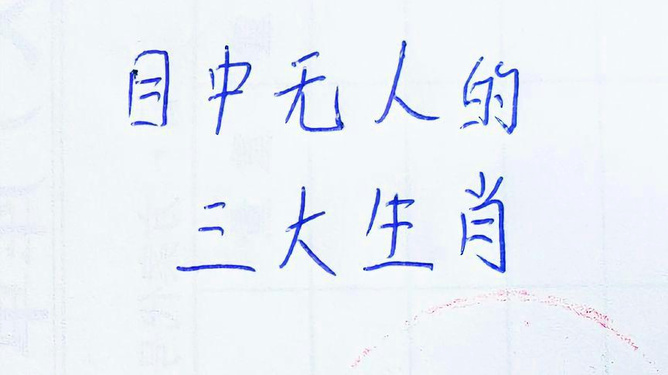 目中无人的
三大生肖